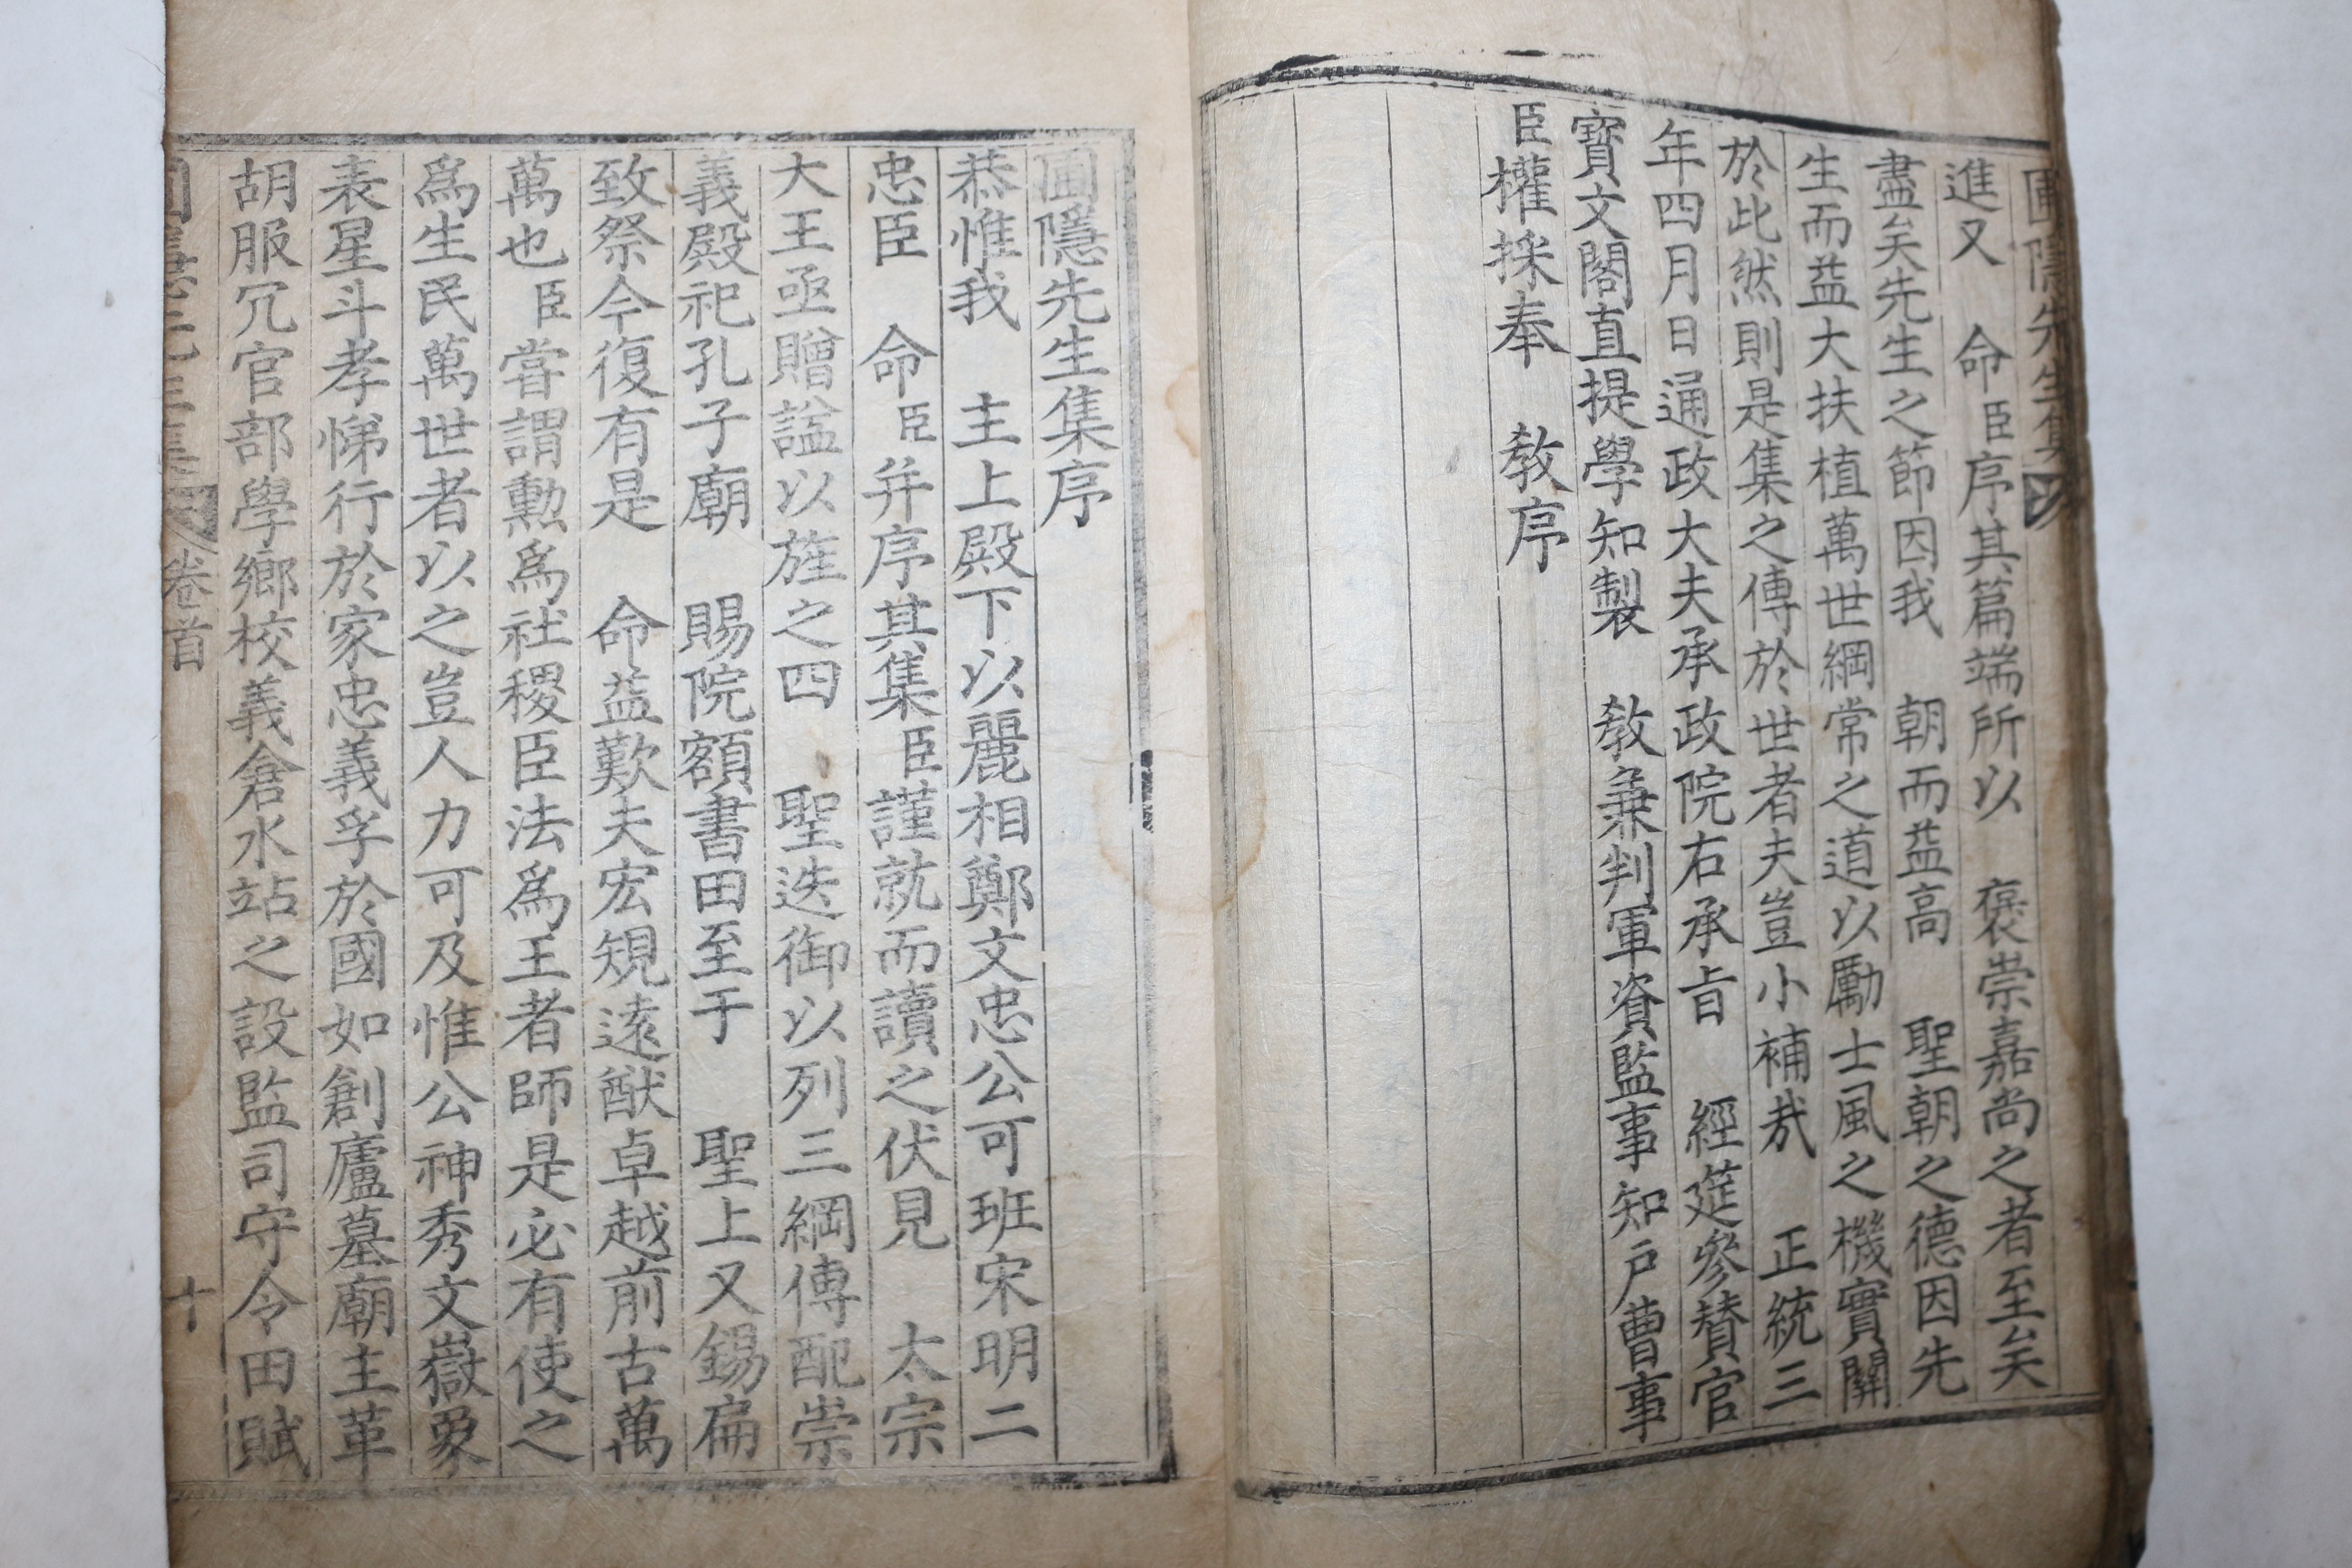 圃隱先生集
進又　命臣序其篇端所以　褒崇嘉尚之者至矣
盡矣先生之節因我　朝而益高　聖朝之德因先
生而益大扶植萬世綱常之道以勵士風之機實關
於此然則是集之傳於世者夫豈小補㢤　正統三
年四月日通政大夫承政院右承㫖　經筵參賛官
寳文閣直提學知製　敎兼判軍資監事知戸曹事
臣權採奉　敎序
圃隱先生集序
恭惟我　主上殿下以麗相鄭文忠公可班宋明二
忠臣　命臣并序其集臣謹就而讀之伏見　太宗
大王亟贈諡以旌之四　聖迭御以列三綱傳配崇
義殿祀孔子廟　賜院額書田至于　聖上又錫扁
致祭今復有是　命益歎夫宏䂓遠猷卓越前古萬
萬也臣嘗謂勲爲社稷臣法爲王者師是必有使之
爲生民萬世者以之豈人力可及惟公神秀文嶽象
表星斗孝悌行於家忠義孚於國如創廬墓廟主革
胡服冗官部學鄉校義倉水站之設監司守令田賦
卷首
十